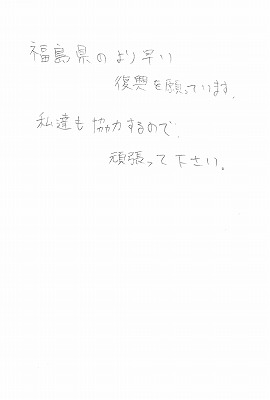 福島県のより早い
復興を願っています。
私達も協力するので
頑張って下さい。